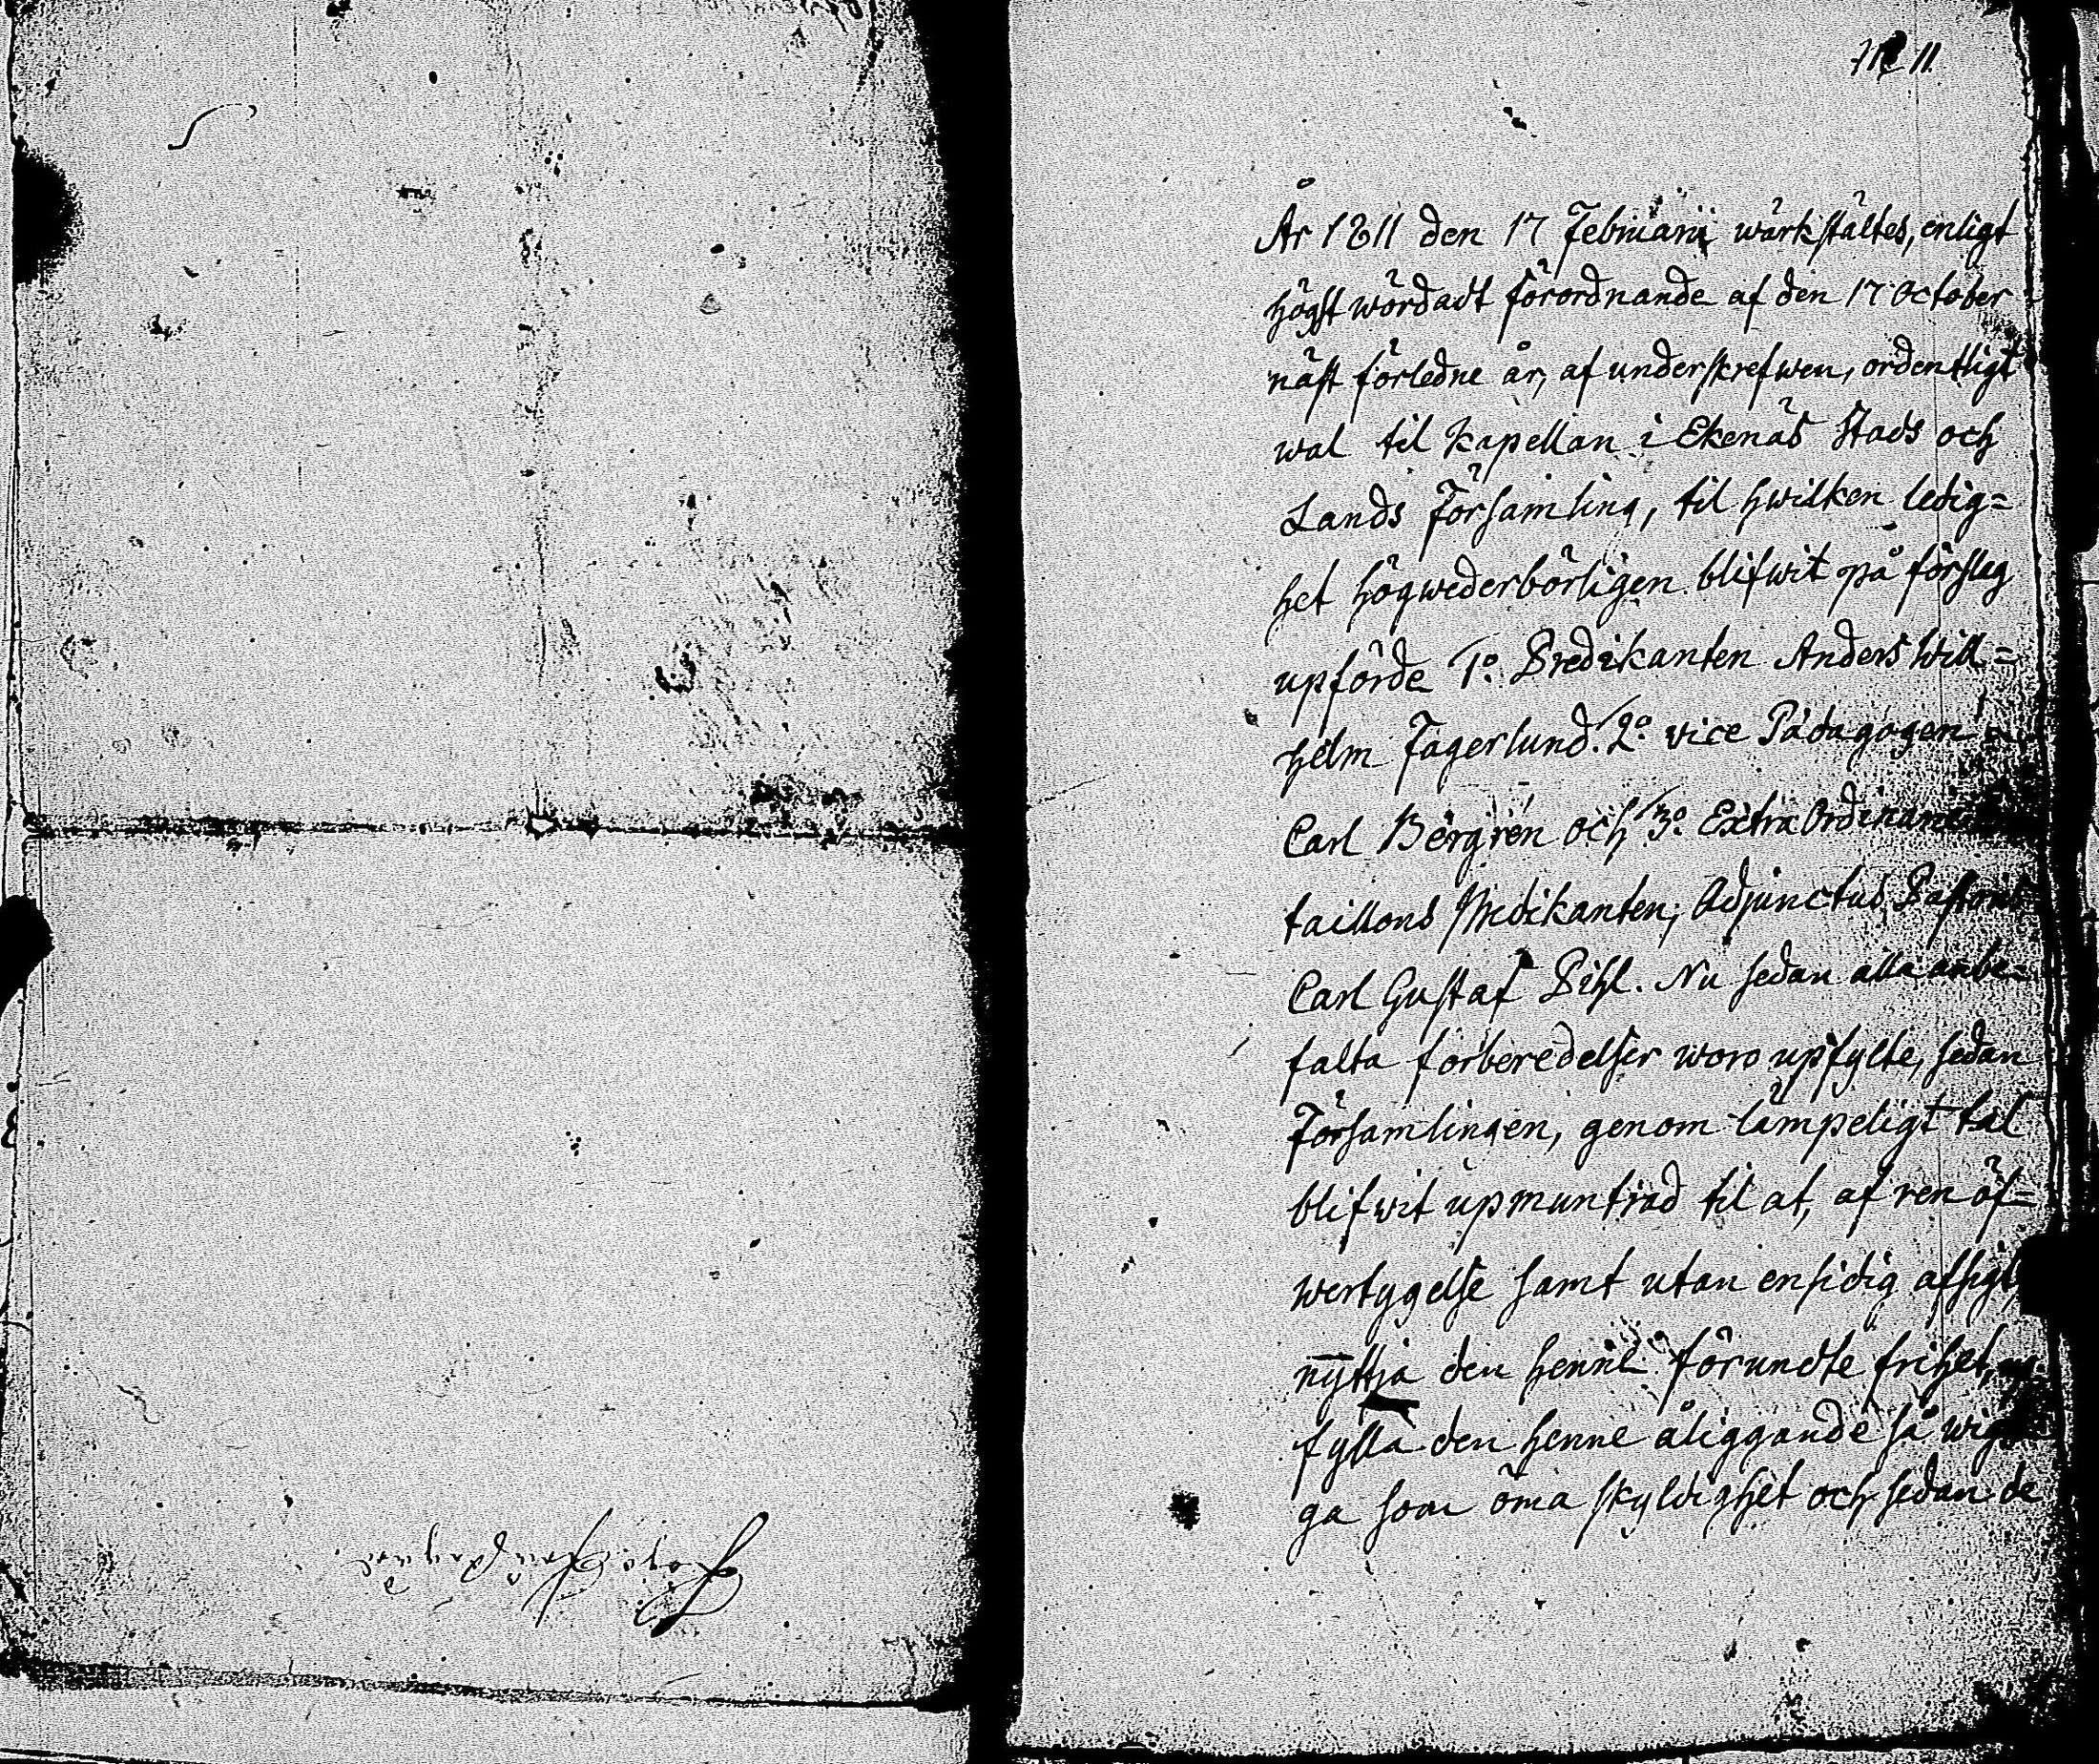 N: 11.
År 1811 den 17 Februarii wärkstältes, enligt
högst wördadt förordnande af den 17 October
näst förledne år, af underskrefwen, ordentligt
wal til Kapellan i Ekenäs Stads och
Lands Församling, til hwilken ledig=
het högwederbörligen blifwit på förslag
upförde 1:o Predikanten Anders Will=
helm Fagerlund. 2:o vice Pädagogen
Carl Bergren och 3:o Extra Ordinarie
taillons Predikanten, Adjunctus Pastoris
Carl Gustaf Pihl. Nu sedan alla anbe=
falta förberedelser woro upfylte, sedan
Församlingen, genom lämpeligt tal
blifwit upmuntrad til at, af ren öf=
wertygelse samt utan ensidig afsigt,
nyttja den henne förundte frihet,
fylla den henne åliggande så wig
ga som öma skyldighet och sedan de